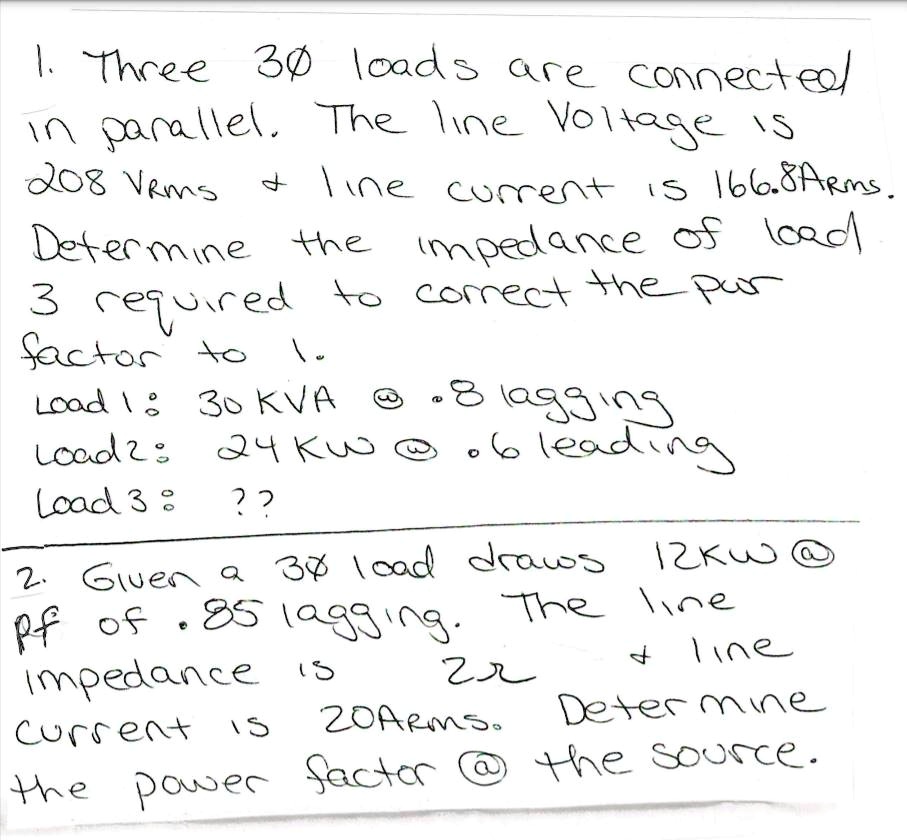 1. Three 3Ø loads are connected
in parallel. The line Voltage is
208 VRMS & line current is 166.8ARMS.
Determine the impedance of load
3 required to correct the pwr
factor to 1.
Load 1: 30 KVA @ .8 lagging
Load 2: 24 KW @ .6 leading
Load 3: ??
2. Given a 3Ø load draws 12KW @
Pf of .85 lagging. The line
impedance is 2Ω & line
current is 20ARMS. Determine
the power factor @ the source.